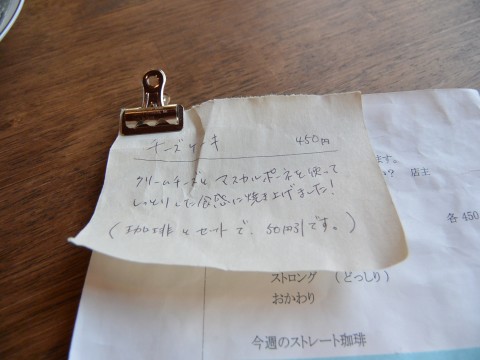 チーズケーキ 450円
クリームチーズとマスカルポーネを使って
しっとりした食感に焼き上げました!
(珈琲とセットで、50円引です。)
ます。
店主
各450
ストロング (どっしり)
おかわり
今週のストレート珈琲